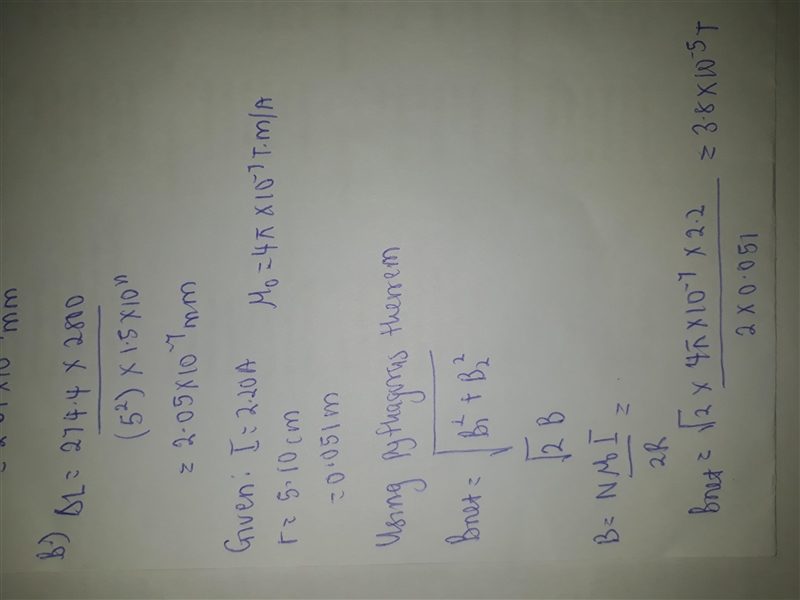 mm
B) ΔL = 274.4 × 2800
(5²) × 1.5 × 10¹¹
= 2.05×10⁻⁷ mm
Given: I = 2.20A μ₀ = 4π × 10⁻⁷ T.m/A
r = 5.10 cm
= 0.051 m
Using pythagoras theorem
Bnet = √B₁² + B₂²
√2 B
B = Nμ₀I =
2R
Bnet = √2 × 4π × 10⁻⁷ × 2.2 = 3.8 × 10⁻⁵ T
2 × 0.051